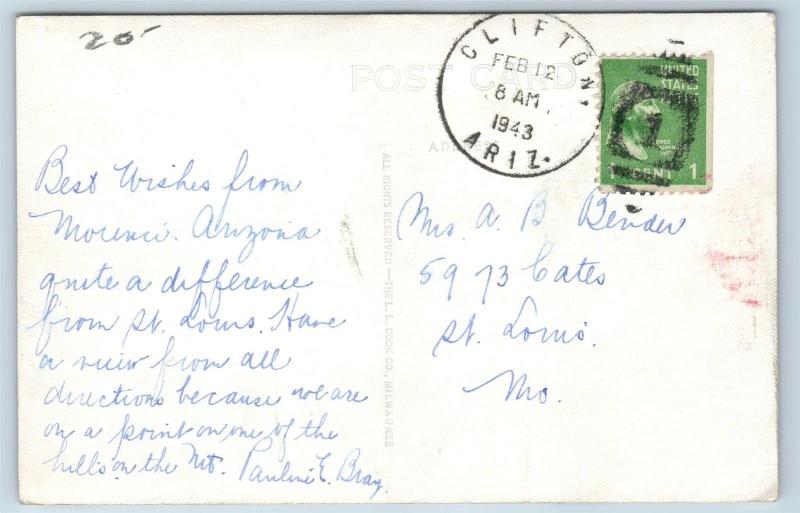 20
POST CARD
CLIFTON,
FEB 12
8 AM
1943
ARIZ.
UNITED
STATES
1
ADDRESS
Best Wishes from
Morenci Arizona
quite a difference
from St. Louis. Have
a view from all
directions because we are
on a point on one of the
hills on the Mt. Pauline E. Bray
ALL RIGHTS RESERVED—THE L. L. COOK CO., MILWAUKEE
Mrs. A. B Bender
5973 Cates
St. Louis
Mo.